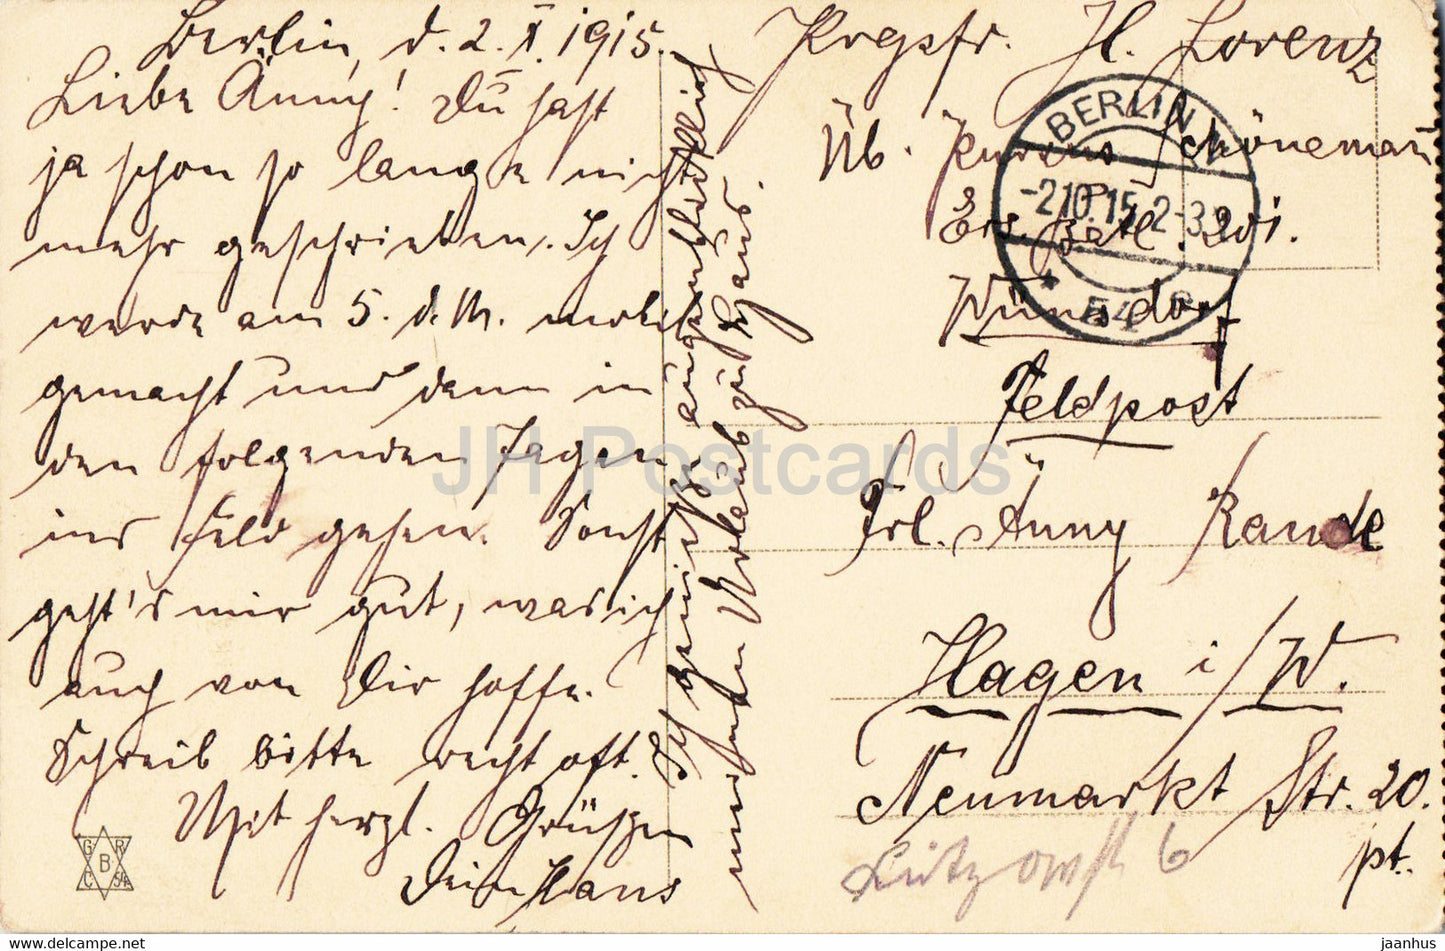 Berlin, d. 2. X. 1915.
Liebe Änny! Du hast
ja schon so lange nicht
mehr geschrieben. Ich
werde am 5. d. M. mobil
gemacht und dann in
den folgenden Tagen
ins Feld gehen. Sonst
geht's mir gut, was ich
auch von Dir hoffe.
Schreib bitte recht oft.
Mit herzl. Grüßen
Dein Hans
Ich genieße augenblicklich
meinen Urlaub zu Haus.
Krgsfr. H. Lorenz
Üb. Kursus Schönemann
Ers. Batl. 201.
Wünsdorf
Feldpost
Frl. Änny Rande
Hagen i/W.
Neumarkt Str. 20.
pt.
Lützowstr 6
BERLIN N
-2.10.15. 2-3
* 54
G R
B
C 54
JH Postcards
https://www.jh-postcards.com
jaanhus